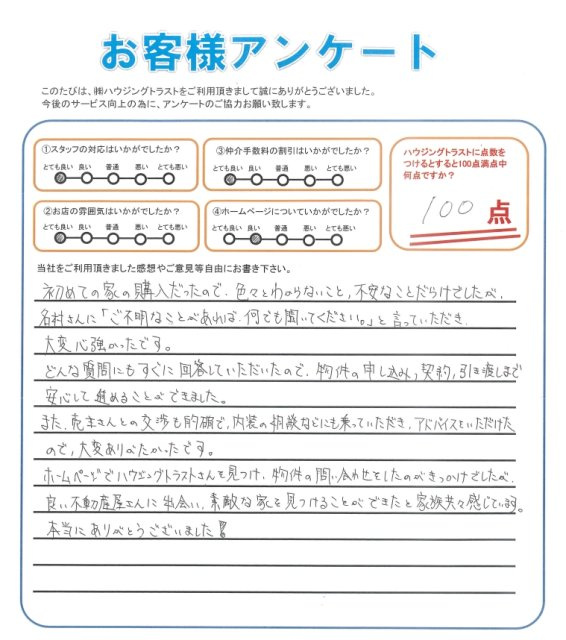 お客様アンケート
このたびは、㈱ハウジングトラストをご利用頂きまして誠にありがとうございました。
今後のサービス向上の為に、アンケートのご協力お願い致します。
①スタッフの対応はいかがでしたか?
とても良い 良い 普通 悪い とても悪い
③仲介手数料の割引はいかがでしたか?
とても良い 良い 普通 悪い とても悪い
②お店の雰囲気はいかがでしたか?
とても良い 良い 普通 悪い とても悪い
④ホームページについていかがでしたか?
とても良い 良い 普通 悪い とても悪い
ハウジングトラストに点数を
つけるとすると100点満点中
何点ですか?
100 点
当社をご利用頂きました感想やご意見等自由にお書き下さい。
初めての家の購入だったので、色々とわからないこと、不安なことだらけでしたが、
名村さんに「ご不明なことがあれば、何でも聞いてください。」と言っていただき、
大変心強かったです。
どんな質問にもすぐに回答していただいたので、物件の申し込み、契約、引き渡しまで
安心して進めることができました。
また、売主さんとの交渉も的確で、内装の相談などにも乗っていただき、アドバイスをいただけた
ので、大変ありがたかったです。
ホームページでハウジングトラストさんを見つけ、物件の問い合わせをしたのがきっかけでしたが、
良い不動産屋さんに出会い、素敵な家を見つけることができたと家族共々感じています。
本当にありがとうございました!